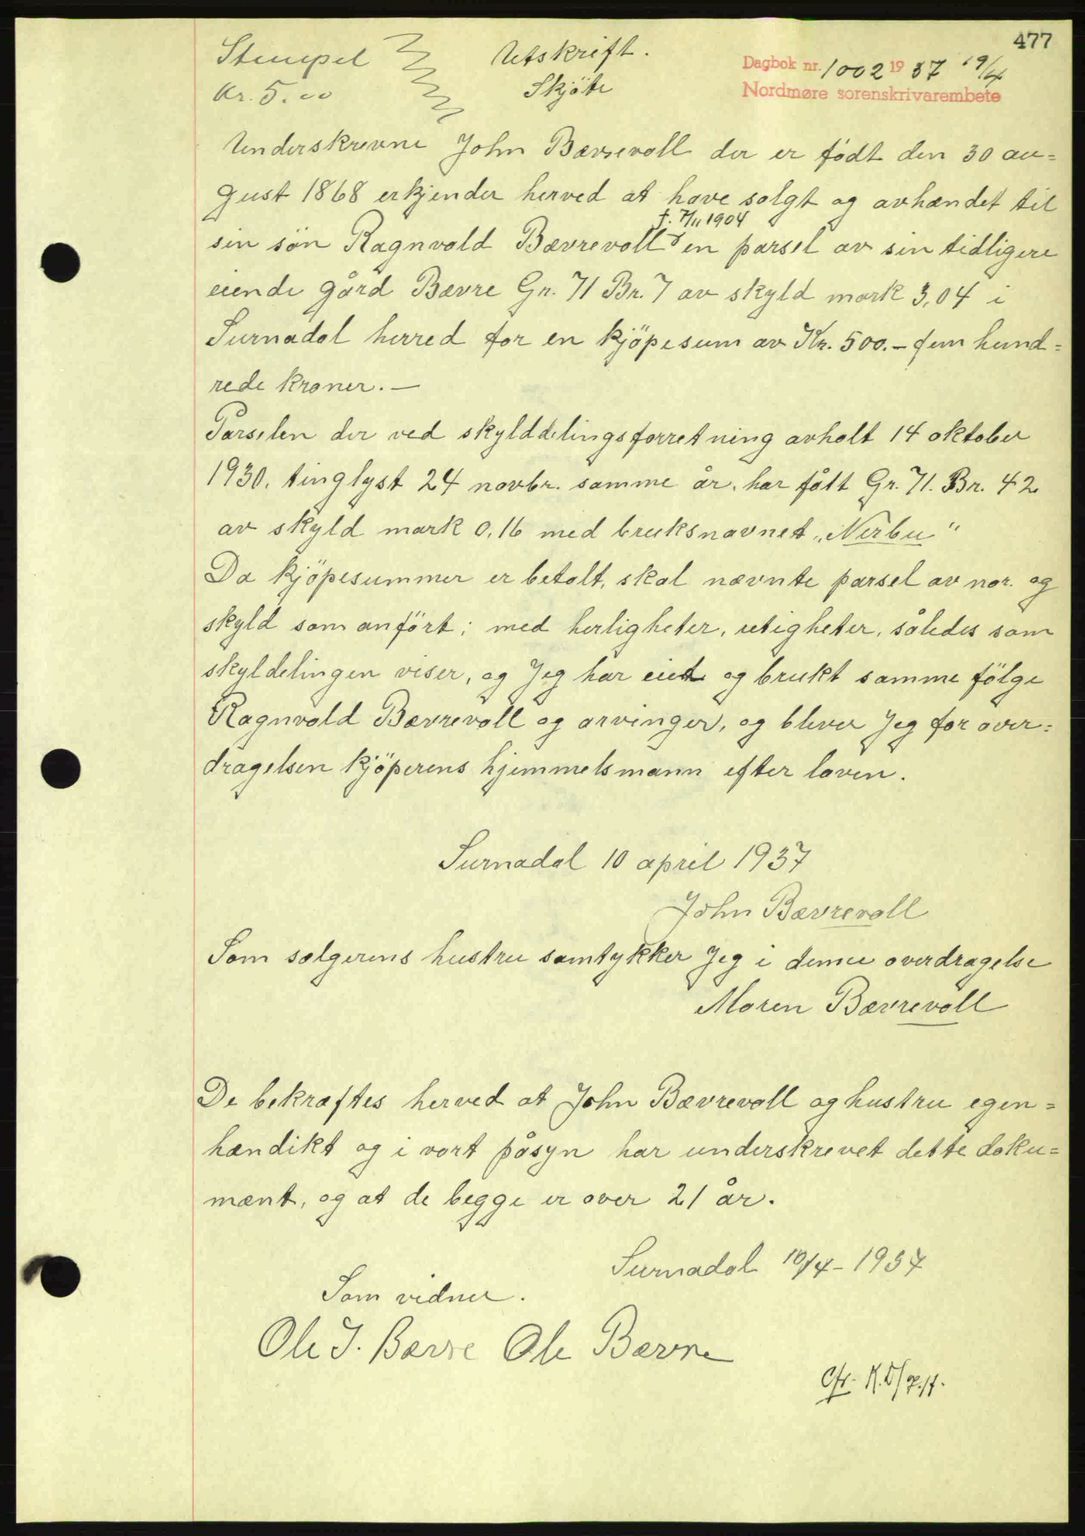 477
Stempel
Kr. 5.00
Utskrift.
Skjöte
Dagbok nr. 1002 1937 19/4
Nordmøre sorenskrivarembete
Underskrevne John Bævrevoll der er født den 30 au=
gust 1868 erkjender herved at have solgt og avhændet til
f. 7/11 1904
sin søn Ragnvald Bævrevoll en parsel av sin tidligere
eiende gård Bævre Gr. 71 Br. 7 av skyld mark 3,04 i
Surnadal herred for en kjöpesum av Kr. 500.- fem hund=
rede kroner. —
Parselen der ved skylddelingsforretning avholt 14 oktober
1930, tinglyst 24 novbr. samme år, har fått Gr. 71. Br. 42
av skyld mark 0,16 med bruksnavnet „Nerbu"
Da kjöpesummer er betalt, skal nævnte parsel av nor. og
skyld som anfört; med herligheter, utigheter, således som
skyldelingen viser, og Jeg har eiet og brukt samme fölge
Ragnvald Bævrevoll og arvinger, og bliver Jeg for over=
dragelsen kjöperens hjemmelsmann efter loven.
Surnadal 10 april 1937
John Bævrevoll
Som sælgerens hustru samtykker Jeg i denne overdragelse
Maren Bævrevoll
De bekræftes herved at John Bævrevoll og hustru egen=
hændikt og i vort påsyn har underskrevet dette doku=
mænt, og at de begge er over 21 år.
Surnadal 10/4 - 1937
Som vidner.
Ole J. Bævre Ole Bævre
Cfr.